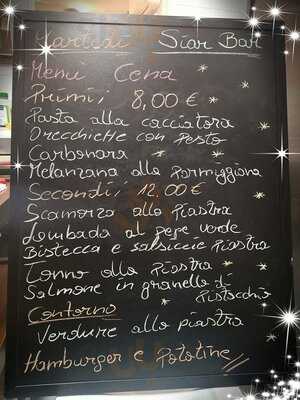 Martedì Star Bar
Menù Cena
Primi; 8,00 €
Pasta alla cacciatora
Orecchiette con Pesto
Carbonara
Melanzana alla Parmiggiana
Secondi; 12,00 €
Scamorza alla Piastra
Lombada al pepe verde
Bistecca e salsiccie Piastra
Tonno alla Piastra
Salmone in granella di
Pistacchio
Contorno
Verdure alla piastra
Hamburger e Patatine